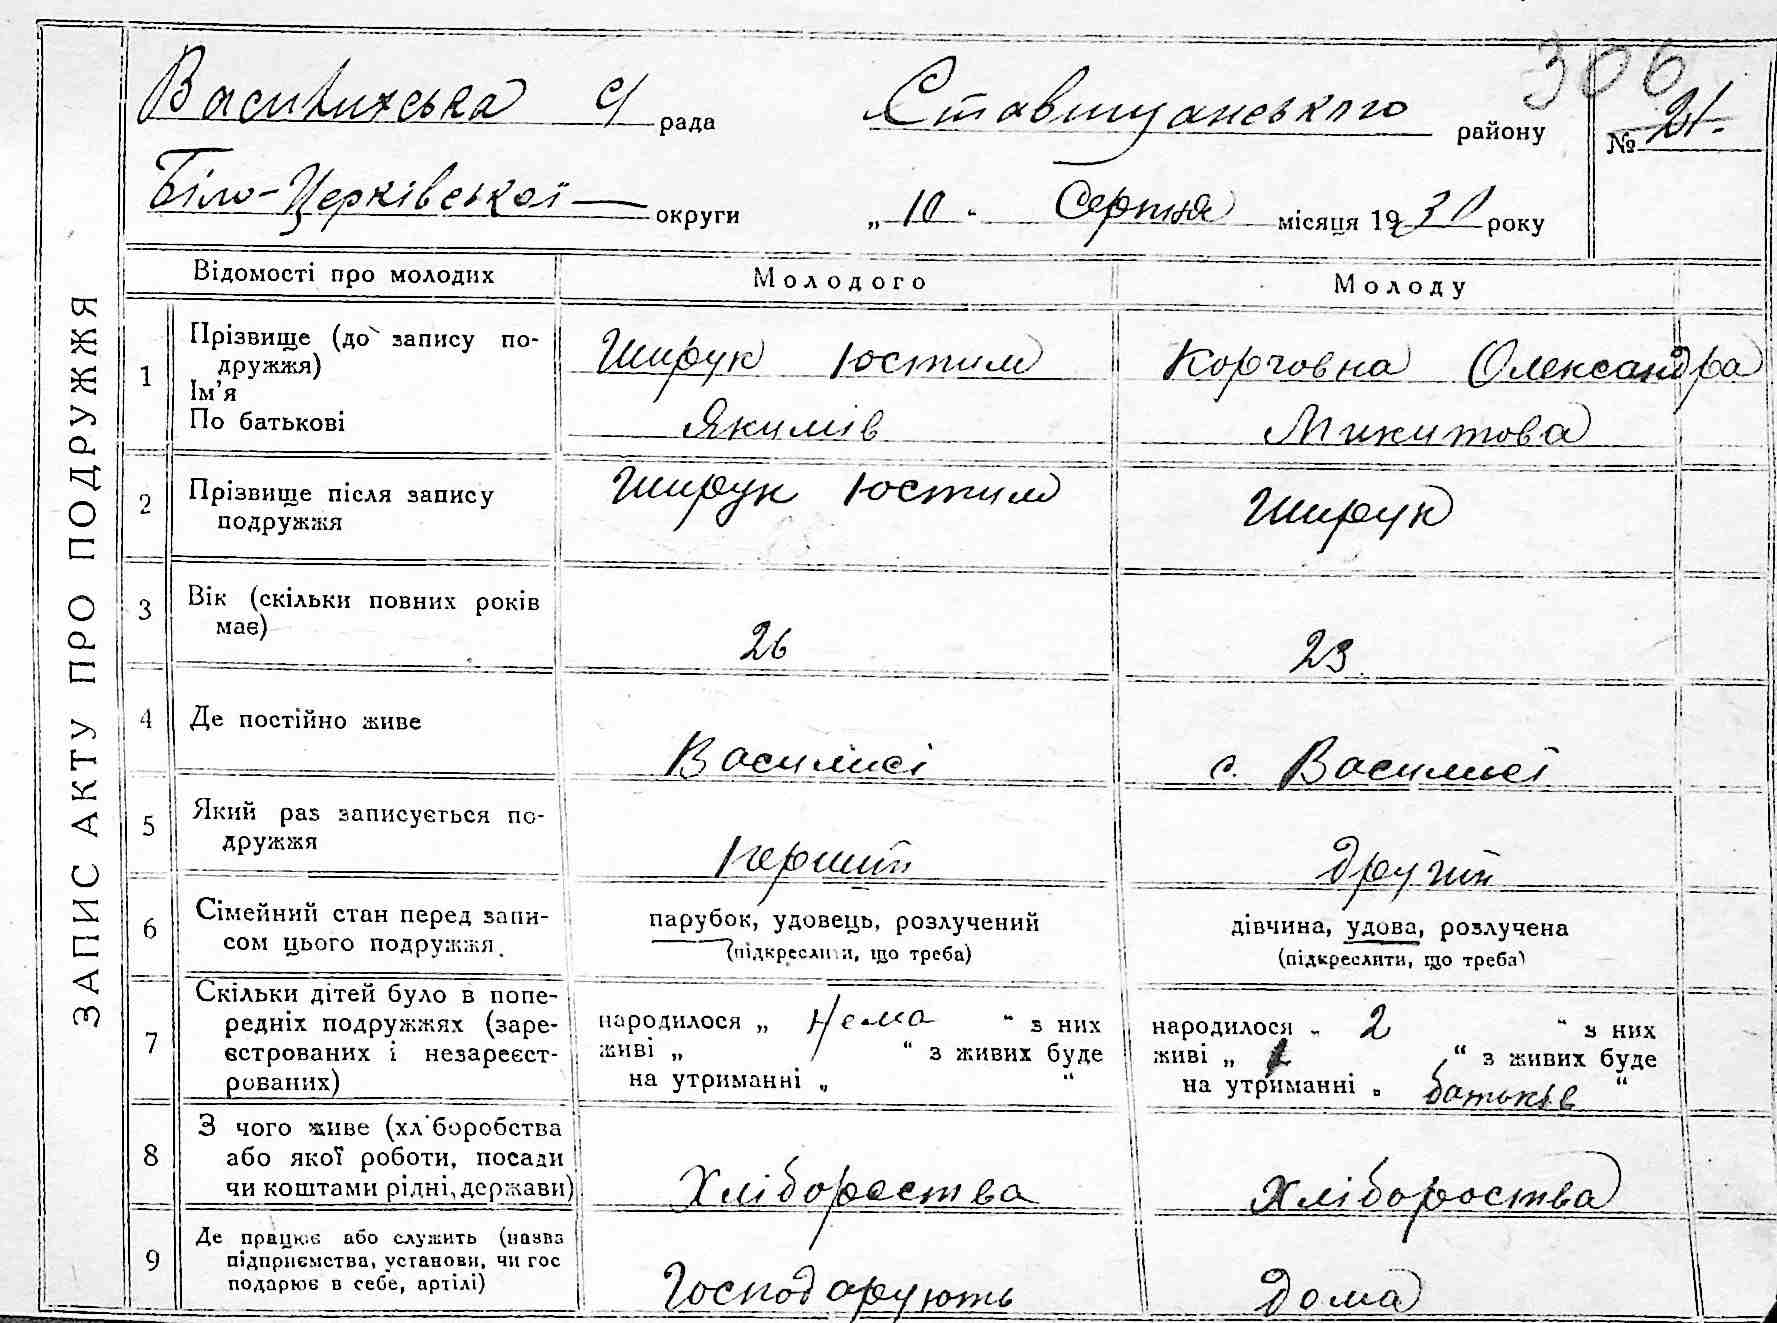 306
Василихська с/ рада Ставищанського району № 21.
Біло-Церківської округи „ 10 " Серпня місяця 1930 року
ЗАПИС АКТУ ПРО ПОДРУЖЖЯ
Відомості про молодих Молодого Молоду
1 Прізвище (до запису подружжя) Ширук Юстим Корчовна Олександра
Ім'я
По батькові Якимів Микитова
2 Прізвище після запису Ширук Юстим Ширук
подружжя
3 Вік (скільки повних років
має) 26 23
4 Де постійно живе
Василисі с. Василисі
5 Який раз записується по-
дружжя Перший Другий
6 Сімейний стан перед запи- парубок, удовець, розлучений дівчина, удова, розлучена
сом цього подружжя. (підкреслити, що треба) (підкреслити, що треба)
7 Скільки дітей було в попе-
редніх подружжях (заре- народилося „ Нема " з них народилося „ 2 " з них
єстрованих і незареєст- живі „ " з живих буде живі „ " з живих буде
рованих) на утриманні „ " на утриманні „ батьків "
8 З чого живе (хліборобства
або якої роботи, посади
чи коштами рідні, держави) Хлібороства Хлібороства
9 Де працює або служить (назва
підприємства, установи, чи гос
подарює в себе, артілі) Господарують Дома